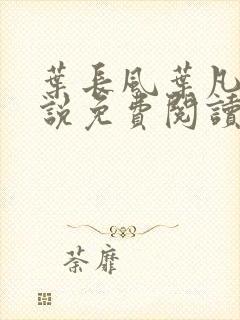 葉長風葉凡
説免費閱讀
荼靡